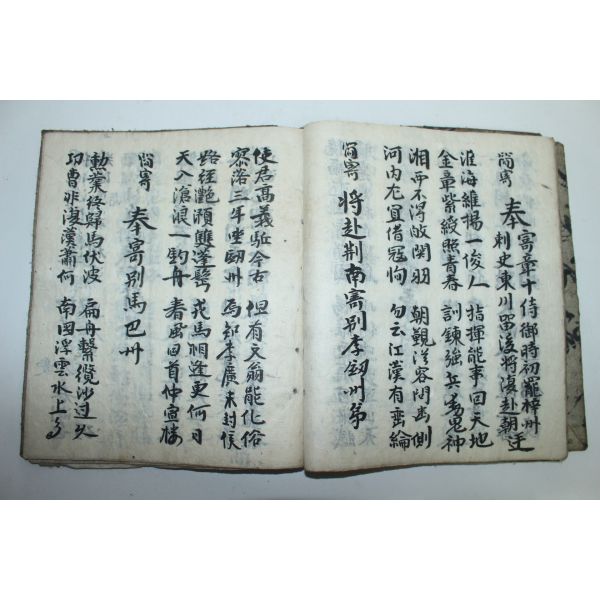 簡寄 奉寄章十侍御時初罷梓州
刺史東川留後將赴朝廷
淮海維揚一俊人 指揮能事回天地
金章紫綬照青春 訓鍊強兵動鬼神
湘西不得歸関羽 朝覲從容問幽側
河内尤宜借寇恂 勿云江漢有垂綸
簡寄 将赴荆南寄別李釼州弟
使君高義駈今古 但有文翁能化俗
寥落三年坐釼州 焉知李廣未封侯
路経灔澦雙蓬鬢 戎馬相逢更何日
天入滄浪一釣舟 春風回首仲宣樓
簡寄 奉寄別馬巴州
勳業終歸馬伏波 扁舟繫纜沙邊久
功曹非復漢蕭何 南国浮雲水上多